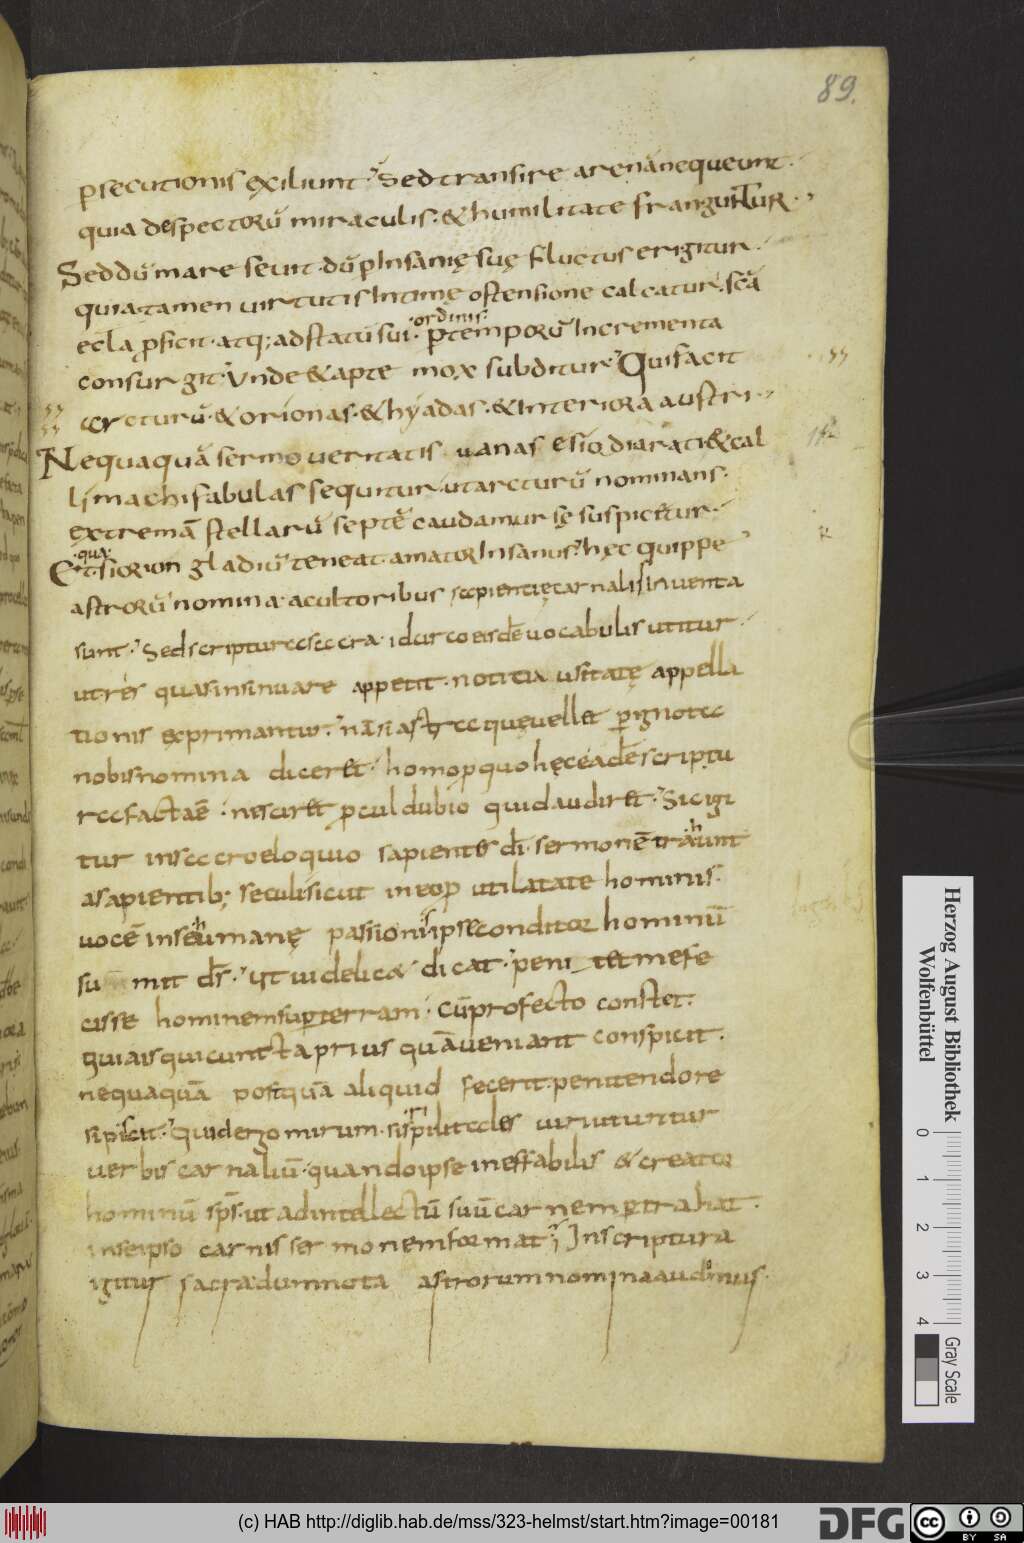 89.
psecutionis exiliunt. Sed transire arenā nequeunt.
quia despectorū miraculis. & humilitate franguntur.
Sed dū mare sevit. dū p insanię suę fluctus erigitur.
quia tamen virtutis intimę ostensione calcatur. scā
ordinis
ecla pficit. atq; ad statū sui. p temporū incrementa
consurgit. Unde & apte mox subditur. Qui facit
arcturū. & orionas. & hyadas. & interiora austri.
Nequaquā sermo veritatis vanas esiodi arati & cal
limachi fabulas sequitur. ut arcturū nominans.
extremā stellarū septē caudam ursę suspicetur.
qua
Et si orion gladiū teneat amator insanus. hęc quippe
astrorū nomina a cultoribus sapientię carnalis inventa
sunt. Sed scriptura sacra. idcirco eisdē vocabulis utitur.
ut res quas insinuare appetit. notitia usitatę appella
tionis exprimantur. nā si astra quę vellet p ignota
nobis nomina diceret. homo p quo hęc eadē scriptu
ra facta ē. nesciret pcul dubio quid audiret. Sic igi
tur in sacro eloquio sapientes di. sermonē trahunt
a sapientib; seculi. sicut in eo p utilitate hominis.
vocē in se humanę passionis ipse conditor hominū
su mit ds. ut videlicet dicat. penitet me fe
cisse hominem super terram. Cū profecto constet.
quia is qui cuncta prius quā veniant conspicit.
nequaquā postquā aliquid fecerit. penitendo re
sipiscit. Quid ergo mirum. si spiritales viri utuntur
verbis carnaliū. quando ipse ineffabilis & creator
hominū sps. ut ad intellectū suū carnem ptrahat.
in seipso carnis sermonem format. In scriptura
igitur sacra dum nota astrorum nomina audimus.
Herzog August Bibliothek
Wolfenbüttel
0 1 2 3 4
Gray Scale
(c) HAB http://diglib.hab.de/mss/323-helmst/start.htm?image=00181
DFG
cc BY SA